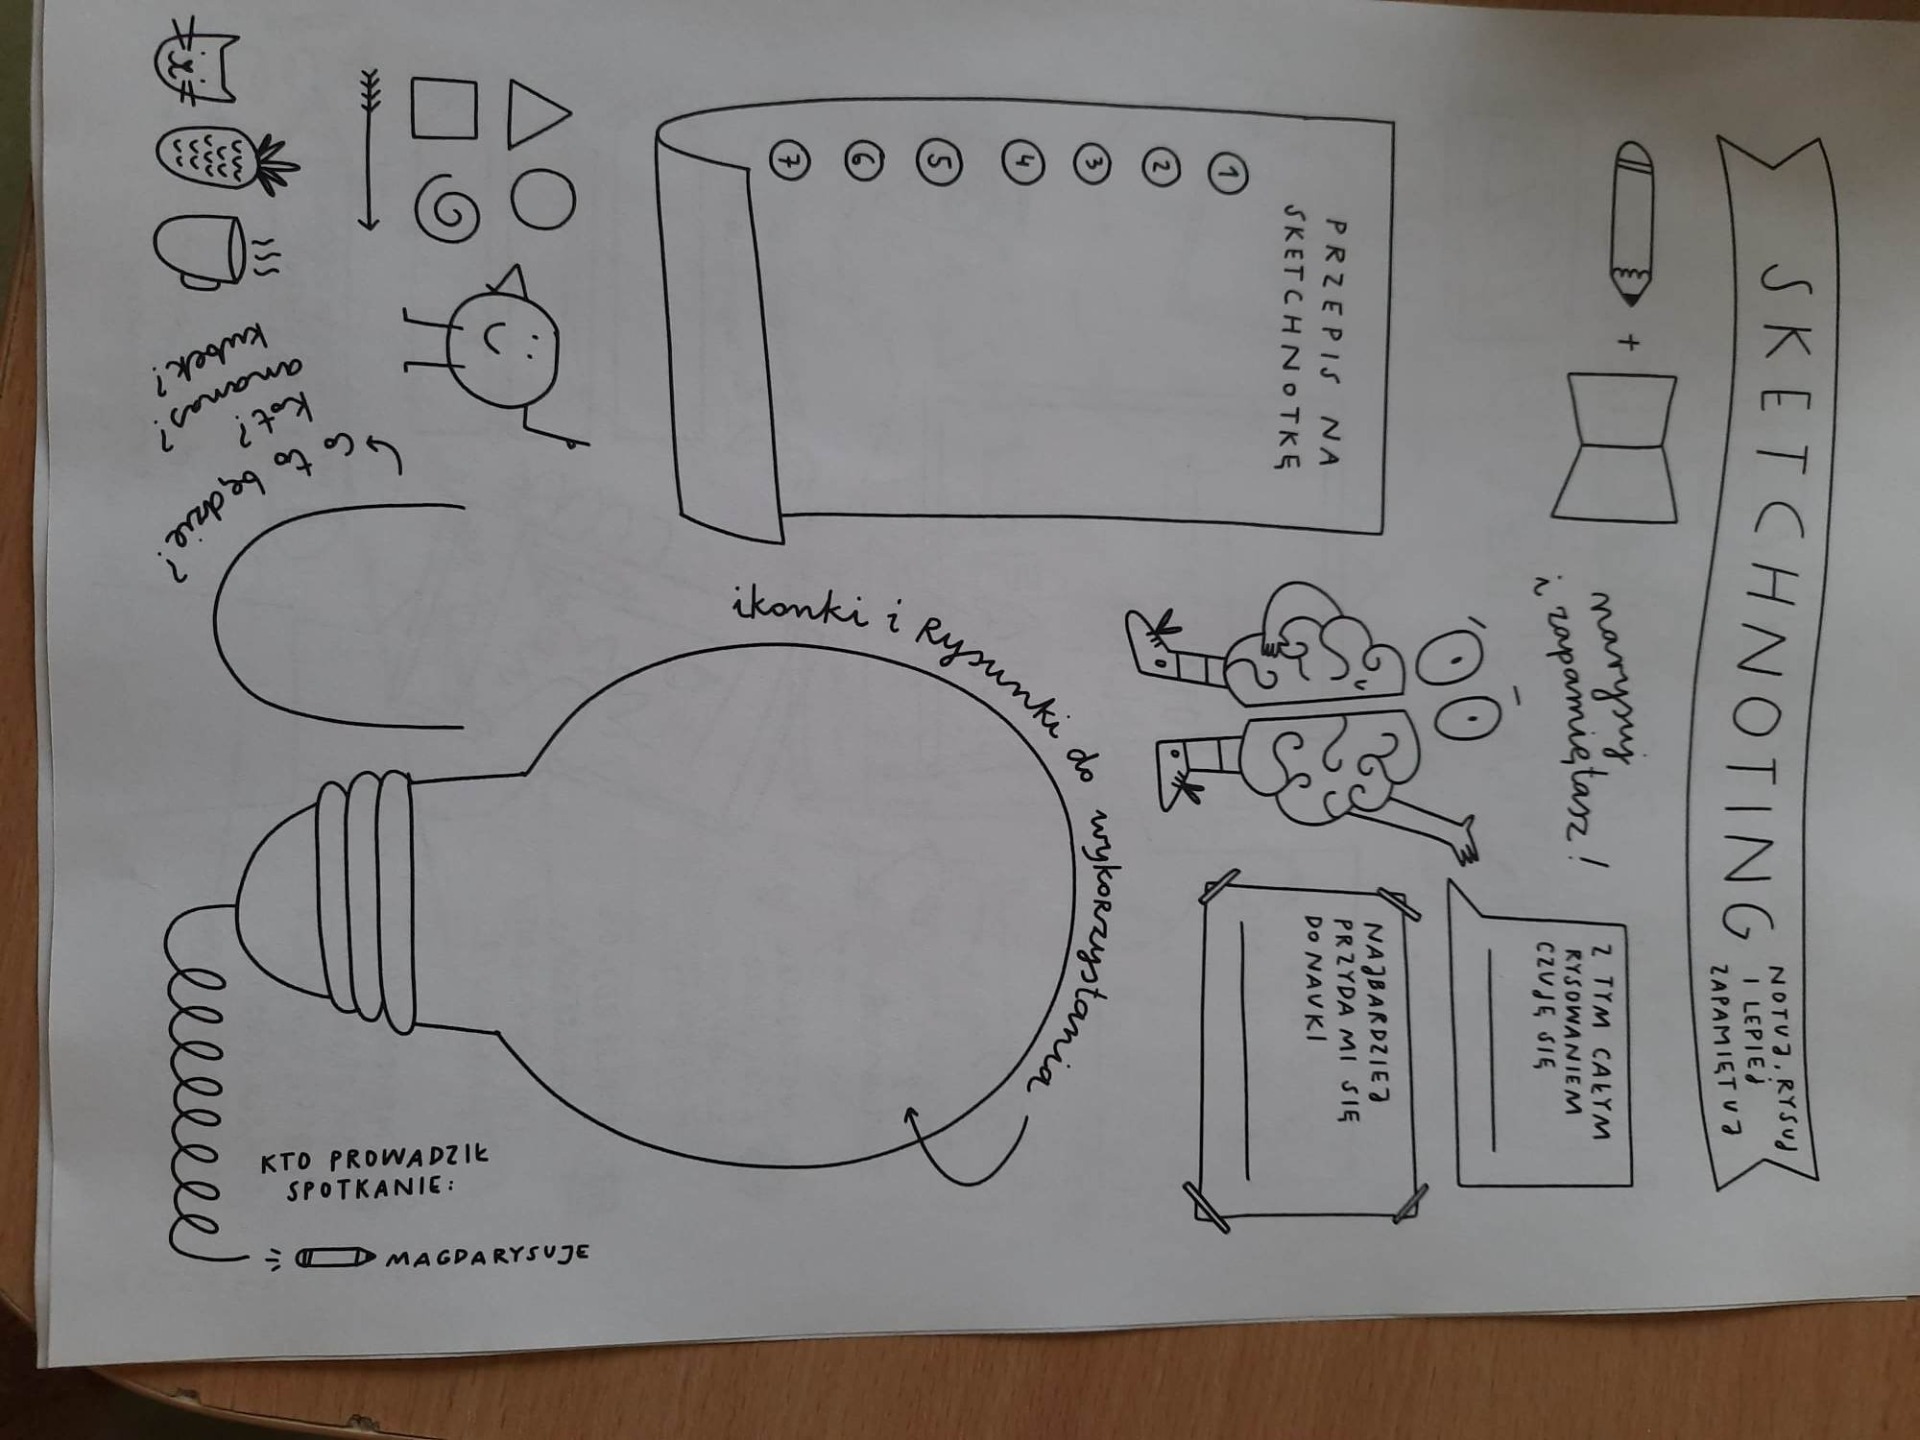 SKETCHNOTING
NOTUJ, RYSUJ
I LEPIEJ
ZAPAMIĘTUJ
+
narysuj
i zapamiętasz!
Z TYM CAŁYM
RYSOWANIEM
CZUJĘ SIĘ
NAJBARDZIEJ
PRZYDA MI SIĘ
DO NAUKI
PRZEPIS NA
SKETCHNOTKĘ
1
2
3
4
5
6
7
ikonki i rysunki do wykorzystania
co to będzie?
kot?
ananas?
kubek?
KTO PROWADZIŁ
SPOTKANIE:
MAGDARYSUJE